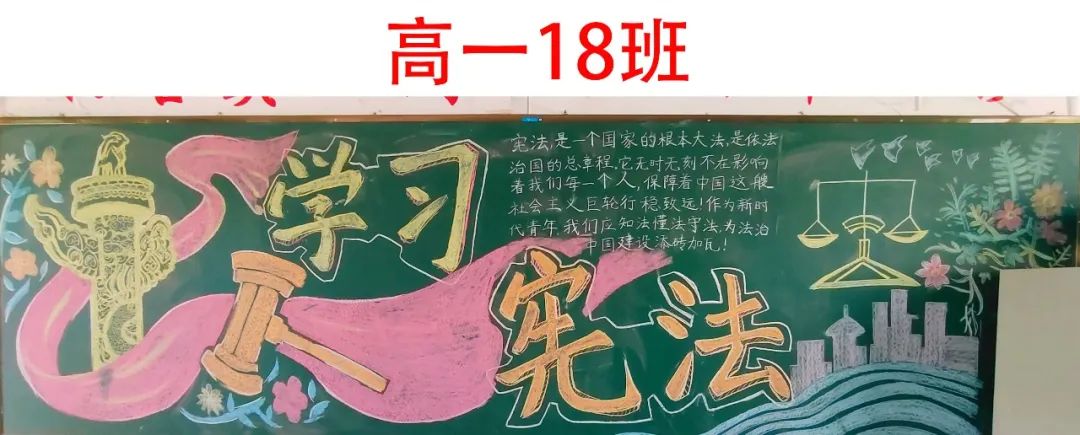 高一18班
学习
宪法,是一个国家的根本大法,是依法
治国的总章程,它无时无刻不在影响
着我们每一个人,保障着中国这艘
社会主义巨轮行稳致远!作为新时
代青年我们应知法懂法守法,为法治
中国建设添砖加瓦!
宪法